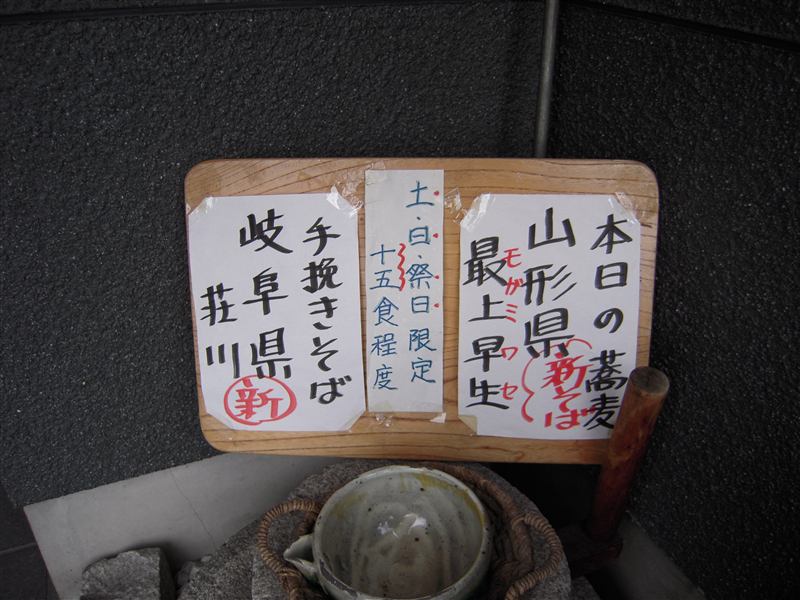 本日の蕎麦
山形県
新そば
モガミワセ
最上早生
土・日・祭日限定
十五食程度
手挽きそば
岐阜県
荘川
新